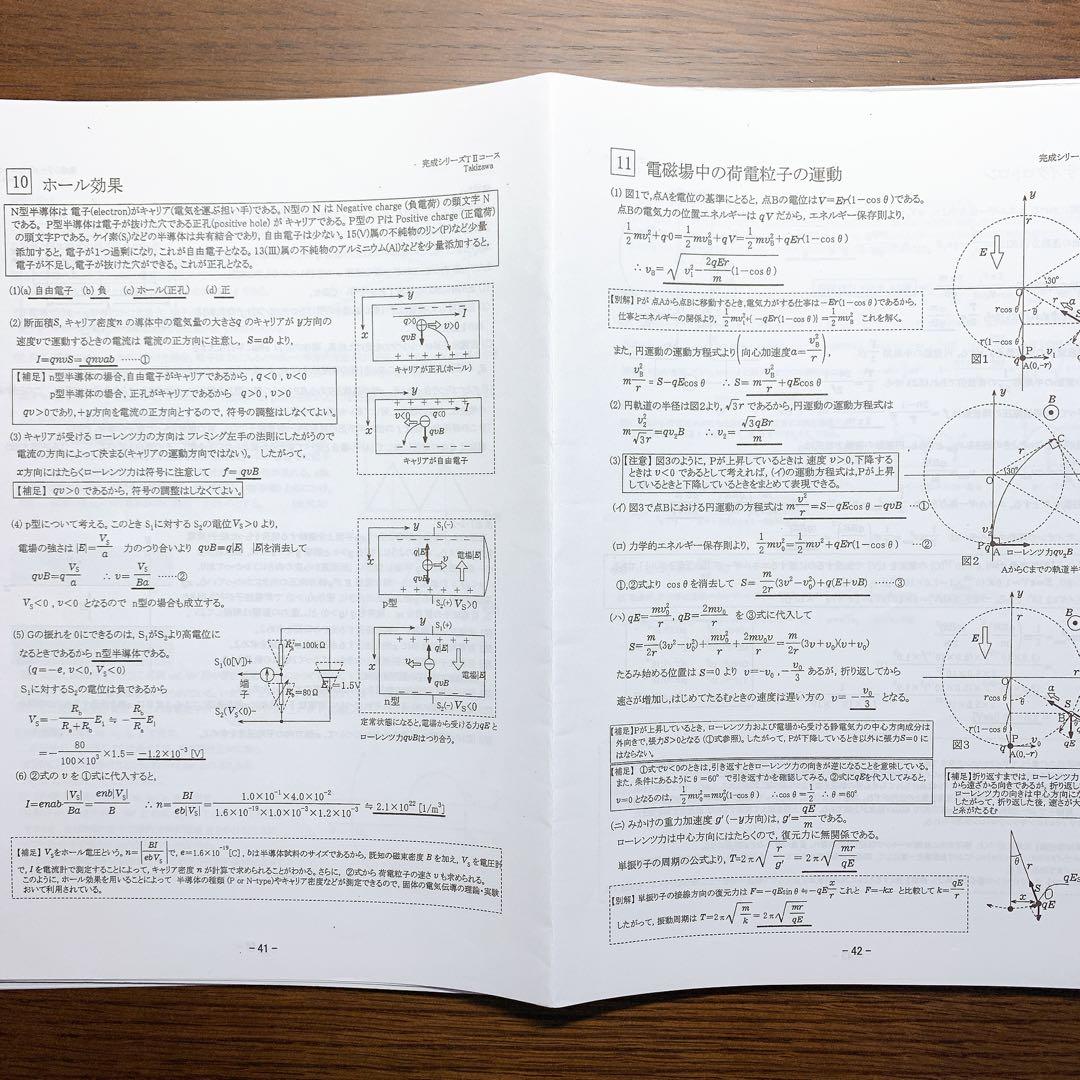 完成シリーズTⅡコース
Takizawa
10 ホール効果
N型半導体は 電子(electron)がキャリア(電気を運ぶ担い手)である。N型の N は Negative charge (負電荷) の頭文字 N
である。 P型半導体は電子が抜けた穴である正孔(positive hole) がキャリアである。P型のPはPositive charge (正電荷)
の頭文字Pである。ケイ素(Si)などの半導体は共有結合であり, 自由電子は少ない。15(Ⅴ)属の不純物のリン(P)など少量
添加すると, 電子が1つ過剰になり, これが自由電子となる。13(Ⅲ)属の不純物のアルミニウム(Al)などを少量添加すると,
電子が不足し,電子が抜けた穴ができる。これが正孔となる。
(1)(a) 自由電子 (b) 負 (c) ホール(正孔) (d) 正
(2) 断面積S, キャリア密度n の導体中の電気量の大きさq のキャリアが y方向の
速度vで運動するときの電流は 電流の正方向に注意し, S=ab より,
I=qnvS= qnvab ……①
【補足】n型半導体の場合,自由電子がキャリアであるから , q<0 , v<0
p型半導体の場合, 正孔がキャリアであるから q>0 , v>0
qv>0であり,+y方向を電流の正方向とするので, 符号の調整はしなくてよい。
y
x
q>0
v>0
I
qvB
+ + + + + +
キャリアが正孔(ホール)
y
x
v<0
q<0
I
qvB
キャリアが自由電子
(3) キャリアが受ける ローレンツ力の方向は フレミング左手の法則にしたがうので
電流の方向によって決まる(キャリアの運動方向ではない)。 したがって,
x方向にはたらくローレンツ力は符号に注意して f= qvB
【補足】 qv>0 であるから, 符号の調整はしなくてよい。
(4) p型について考える。このとき S₁に対する S₂の電位VS>0 より,
電場の強さは |E|=VS/a 力のつり合いより qvB=q|E| |E|を消去して
qvB=q VS/a ∴ v= VS/Ba ……②
VS<0 , v<0 となるので n型の場合も成立する。
y
S₁(−)
x
q|E|
v
電場|E|
qvB
p型
S₂(+) VS>0
y
S₁(+)
x
q|E|
v
電場|E|
qvB
n型
S₂(−) VS<0
定常状態になると,電場から受ける力qEと
ローレンツ力qvBはつり合う。
(5) Gの振れを0にできるのは, S₁がS₂より高電位に
なるときであるから n型半導体である。
(q=−e, v<0, VS<0)
S₁に対するS₂の電位は負であるから
VS=− Rb/(Ra+Rb) E₁ ≒ − Rb/Ra E₁
=− 80/(100×10³) ×1.5= −1.2×10⁻³ [V]
S₁(0[V])+
端子
S₂(VS<0)−
=100kΩ
=80Ω
=1.5V
(6) ②式の v を ①式に代入すると,
I=enab |VS|/Ba = enb|VS|/B ∴ n= BI/eb|VS| = 1.0×10⁻¹×4.0×10⁻²/1.6×10⁻¹⁹×1.0×10⁻³×1.2×10⁻³ ≒ 2.1×10²² [1/m³]
【補足】 VSをホール電圧という。n=|BI/ebVS| で, e=1.6×10⁻¹⁹[C] , bは半導体試料のサイズであるから, 既知の磁束密度 B を加え, VS を電圧計
で, I を電流計で測定することによって, キャリア密度 n が計算で求められることがわかる。さらに, ②式から 荷電粒子の速さ v も求められる。
このように, ホール効果を用いることによって 半導体の種類 (P or N-type)やキャリア密度などが測定できるので, 固体の電気伝導の理論・実験
おいて利用されている。
− 41 −
完成シリーズ
11 電磁場中の荷電粒子の運動
(1) 図1で,点Aを電位の基準にとると, 点Bの電位は V=Er(1−cosθ)である。
点Bの電気力の位置エネルギーは qV だから, エネルギー保存則より,
1/2 mv₁²+q·0=1/2 mvB²+qV=1/2 mvB²+qEr(1−cosθ)
∴ vB= √(v₁²− 2qEr/m (1−cosθ))
【別解】 Pが 点Aから点Bに移動するとき,電気力がする仕事は −Er(1−cosθ)であるから,
仕事とエネルギーの関係より, 1/2 mv₁²+{−qEr(1−cosθ)}=1/2 mvB² これを解く。
また, 円運動の運動方程式より (向心加速度a= vB²/r) ,
m vB²/r =S−qEcosθ ∴ S= m vB²/r +qEcosθ
y
r
E
30°
O
r
rcosθ
θ
a
r(1−cosθ)
P
q
A(0,−r)
v₁
図1
(2) 円軌道の半径は図2より, √3r であるから,円運動の運動方程式は
m v₂²/√3r =qv₂B ∴ v₂= √3qBr/m
y
B
C
r
30°
O
v₂
P
q
A
ローレンツ力qv₂B
図2
AからCまでの軌道半
(3)【注意】 図3のように, Pが上昇しているときは 速度 v>0,下降する
ときは v<0 であるとして考えれば, (イ)の運動方程式は,Pが上昇
しているときと下降しているときをまとめて表現できる。
(イ) 図3で点Bにおける円運動の方程式は m v²/r =S−qEcosθ−qvB …①
(ロ) 力学的エネルギー保存則より, 1/2 mv₀²=1/2 mv²+qEr(1−cosθ) ……②
①,②式より cosθを消去して S= m/2r (3v²−v₀²)+q(E+vB) ……③
(ハ) qE= mv₀²/r , qB= 2mv₀/r を ③式に代入して
S= m/2r (3v²−v₀²)+ mv₀²/r + 2mv₀v/r = m/2r (3v+v₀)(v+v₀)
たるみ始める位置は S=0 より v=−v₀ , − v₀/3 あるが, 折り返してから
速さが増加し,はじめてたるむときの速度は遅い方の v= − v₀/3 となる。
y
r
E
B
O
rcosθ
θ
r
a
B
S
qE
r(1−cosθ)
P
q
A(0,−r)
v₀
図3
【補足】Pが上昇しているとき, ローレンツ力および電場から受ける静電気力の中心方向成分は
外向きで,張力S>0となる (①式参照)。したがって, Pが下降しているとき以外に張力S=0 に
はならない。
【補足】 ①式でv<0のときは,引き返すときローレンツ力の向きが逆になることを意味している。
また, 条件にあるように θ=60° で引き返すかを確認してみる。②式にqEを代入してみると,
v=0となるのは, 1/2 mv₀²=mv₀²(1−cosθ) ∴cosθ=1/2 ∴ θ=60°
【補足】折り返すまでは, ローレンツ力
から遠ざかる向きであるが, 折り返
ローレンツ力の向きは中心方向にな
したがって, 折り返した後, 速さが大
と糸がたるむ
(ニ) みかけの重力加速度 g′(−y方向)は, g′= qE/m である。
ローレンツ力は中心方向にはたらくので, 復元力に無関係である。
単振り子の周期の公式より, T=2π√(r/g′) = 2π√(mr/qE)
【別解】 単振り子の接線方向の復元力は F=−qEsinθ≒−qE x/r これと F=−kx と比較して k= qE/r
したがって, 振動周期は T=2π√(m/k) = 2π√(mr/qE)
θ
r
S
x
qE
− 42 −